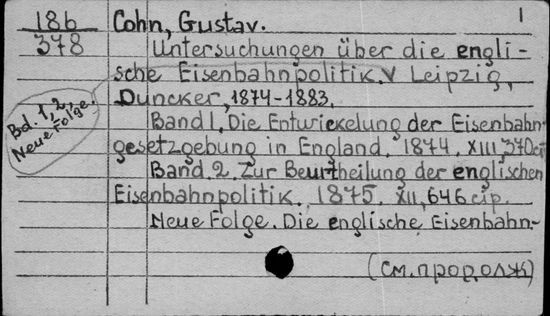 186
378
1
Cohn, Gustav.
Untersuchungen über die engli-
sche Eisenbahnpolitik. V Leipzig,
Duncker, 1874-1883.
Bd. 1, 2,
Neue Folge.
Band 1. Die Entwickelung der Eisenbahn-
gesetzgebung in England. 1874. XIII, 370 ст
Band. 2. Zur Beurtheilung der englischen
Eisenbahnpolitik. 1875. XII, 646 стр.
Neue Folge. Die englische Eisenbahn-
(См. продолж)